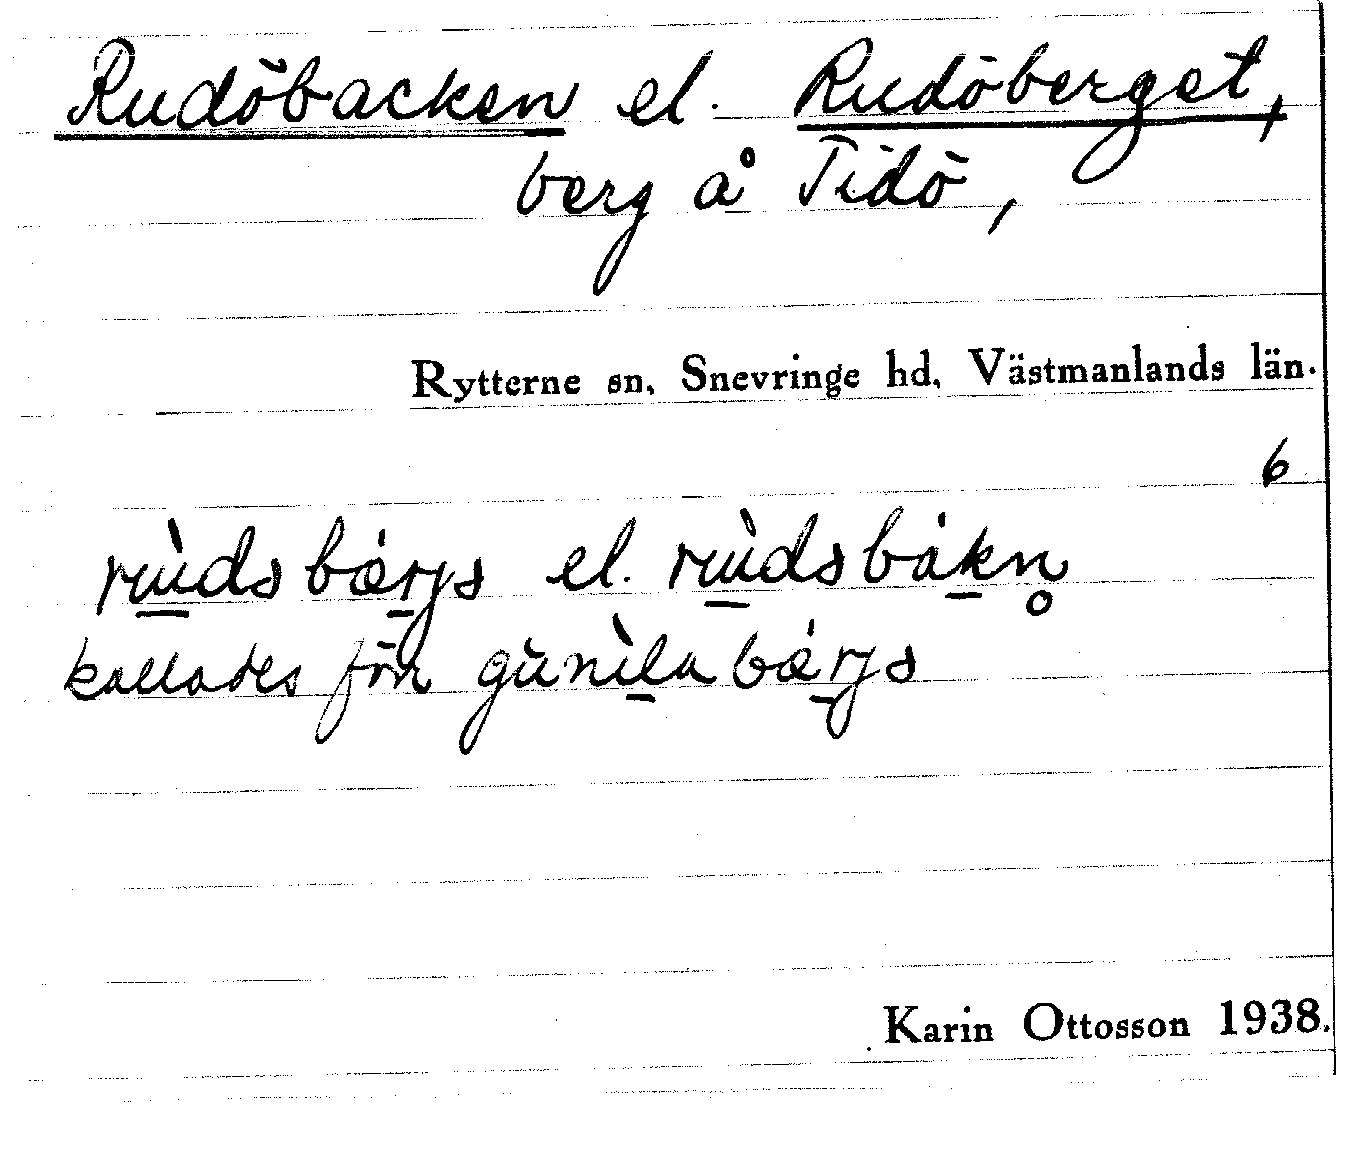 Rudöbacken el. Rudöberget,
berg å Tidö,
Rytterne sn, Snevringe hd, Västmanlands län.
6
rùdsbárjs el. rùdsbákn̥
kallades förr gùnìlabǽrjs
Karin Ottosson 1938.